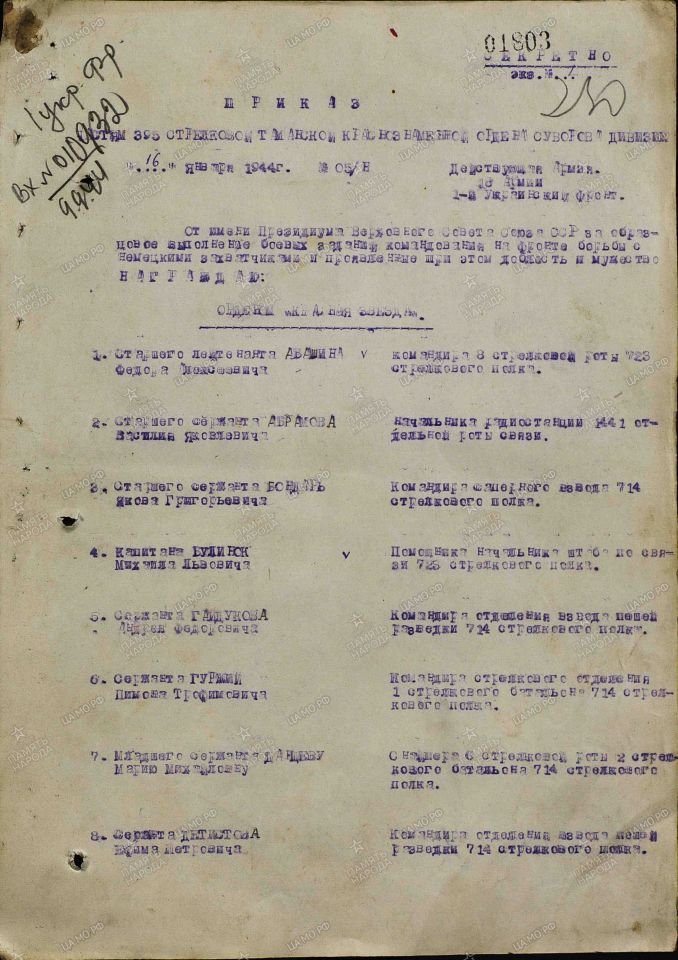 01803
СЕКРЕТНО
экз.№ 1
1 укр. Фр.
Вх №010932
ПРИКАЗ
ЧАСТЯМ 395 СТРЕЛКОВОЙ ТАМАНСКОЙ КРАСНОЗНАМЕННОЙ ОРДЕНА СУВОРОВА ДИВИЗИИ
"16" Января 1944г. № 05/Н
Действующая Армия.
18 Армии
1-й Украинский фронт.
От имени Президиума Верховного Совета Союза ССР за образ-
цовое выполнение боевых заданий командования на фронте борьбы с
немецкими захватчиками и проявленные при этом доблесть и мужество
НАГРАЖДАЮ:
ОРДЕНОМ "КРАСНАЯ ЗВЕЗДА".
1. Старшего лейтенанта АВАШИНА v командира 8 стрелковой роты 723
Федора Алексеевича стрелкового полка.
2. Старшего сержанта АБРАМОВА Начальника радиостанции 1441 от-
Василия Яковлевича дельной роты связи.
3. Старшего сержанта БОНДАРЬ Командира саперного взвода 714
Якова Григорьевича стрелкового полка.
4. Капитана БУЛИНСК v Помощника начальника штаба по свя-
Михаила Львовича зи 723 стрелкового полка.
5. Сержанта ГАЙДУКОВА Командира отделения взвода пешей
Андрея Федоровича разведки 714 стрелкового полка.
6. Сержанта ГУРЖИЙ Командира стрелкового отделения
Пимова Трофимовича 1 стрелкового батальона 714 стрел-
кового полка.
7. Младшего сержанта ДАНЦЕВУ Снайпера 6 стрелковой роты 2 стрел-
Марию Михайловну кового батальона 714 стрелкового
полка.
8. Сержанта ДЕТИСТОВА Командира отделения взвода пешей
Петровича разведки 714 стрелкового полка.
ПАМЯТЬ НАРОДА
ЦАМО.РФ